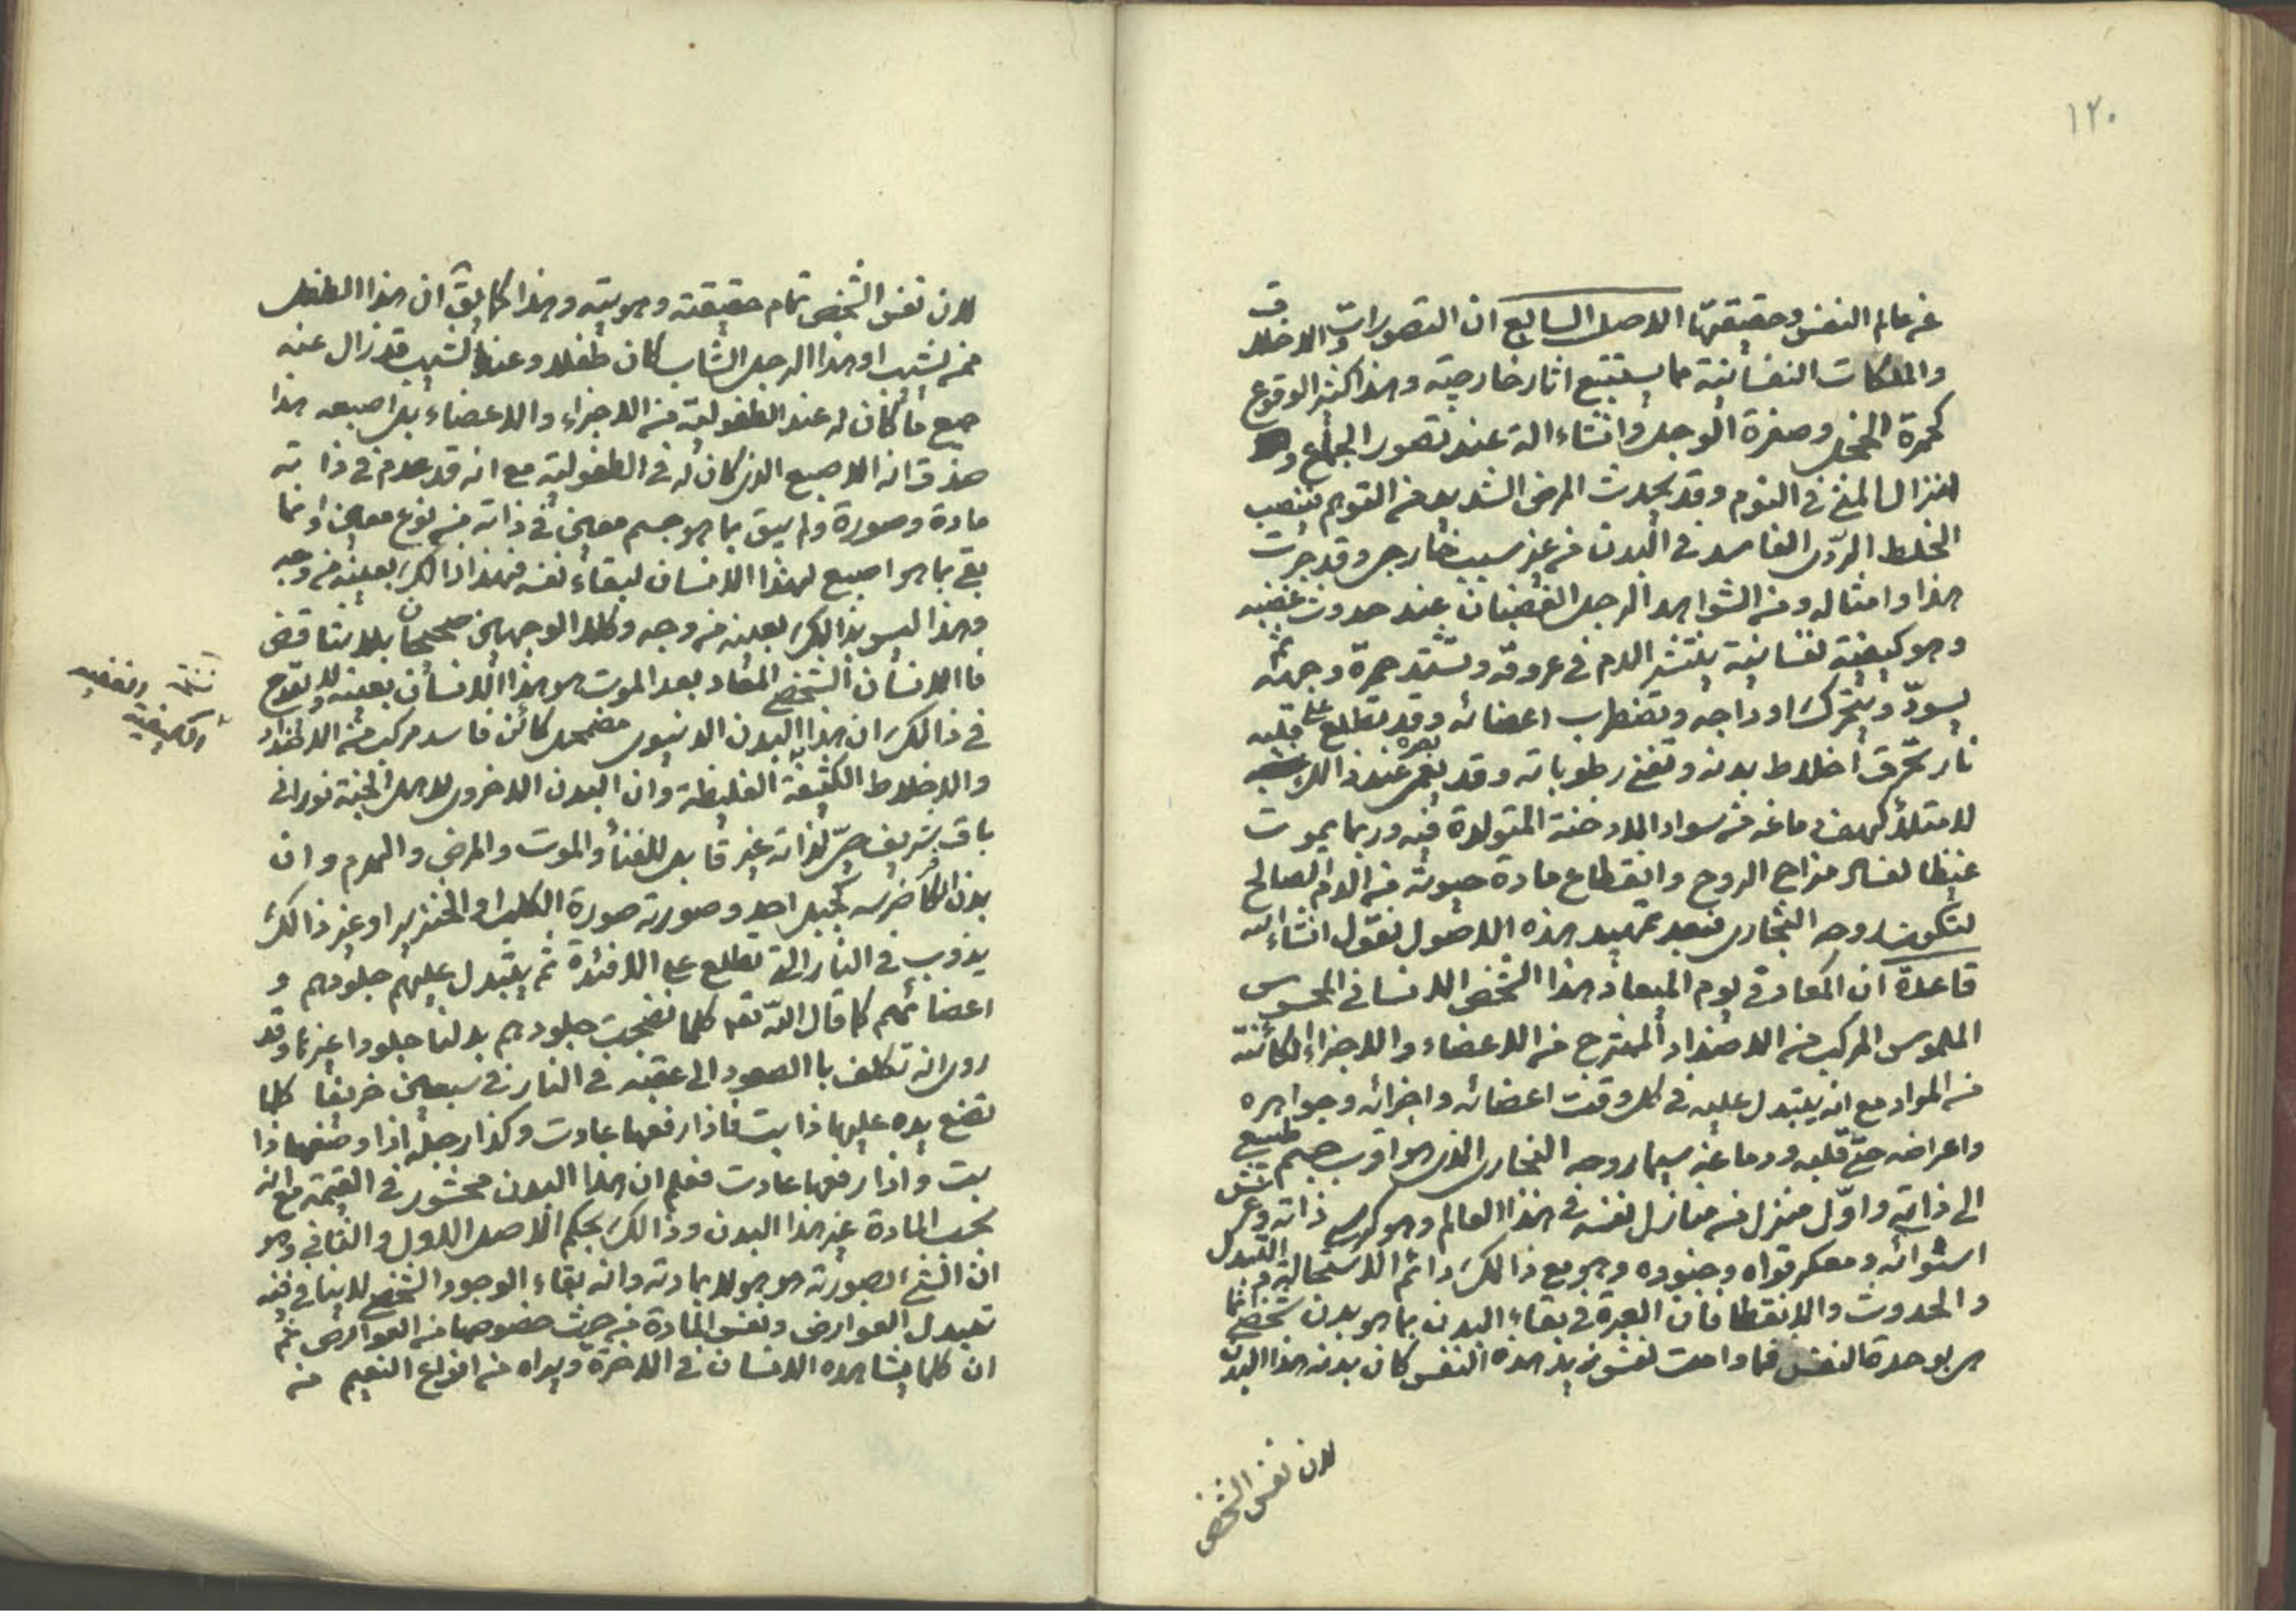 ١٢٠
عن عالم النفس وحقيقتها الاصل السابع ان التصورات والاخلاق
والملكات النفسانية مما يستتبع اثار خارجية وهذا كثير الوقوع
كحمرة الخجل وصفرة الوجل وانتشاء الة عند تصور الجماع و
انزال المنى في النوم وقد يحدث المرض الشديد من التوهم
الخلط الردى الفاسد في البدن من غير سبب خارجى وقد جرت
هذا وامثاله ومن الشواهد الرجل الغضبان عند حدوث غضبه
وهو كيفية نفسانية ينتشر الدم في عروقه وتشتد حمرة وجهه ثم
يسودّ ويتحرك اوداجه وتضطرب اعضائه وقد تطلع على قلبه
نار تحرق اخلاط بدنه وتفنى رطوباته وقد يعمى بصره عند ذالك
لامتلاء كهف دماغه من سواد الادخنة المتولدة فيه وربما يموت
غيظا لفساد مزاج الروح وانقطاع مادة حيوته من الدم الصالح
لتكون روحه البخارى فبعد تمهيد هذه الاصول نقول انشاء الله
قاعدة ان المعاد في يوم الميعاد هذا الشخص الانسانى المحسوس
الملموس المركب من الاضداد الممتزج من الاعضاء والاجزاء الكائنة
من المواد مع انه يتبدل عليه في كل وقت اعضائه واجزائه وجواهره
واعراضه حتى قلبه ودماغه سيما روحه البخارى الذى هو اقرب جسم طبيعى
الى ذاته واوّل منزل من منازل نفسه في هذا العالم وهو كرسى ذاته وعرش
استوائه ومعسكر قواه وجنوده وهو مع ذالك دائم الاستحالة والتبدل
والحدوث والانقطاع فان العبرة في بقاء البدن بما هو بدن شخصى انما
هى بوحدة النفس فما دامت نفس زيد هذه النفس كان بدنه هذا البدن
لان نفس الشخص
لان نفس الشخص تمام حقيقته وهويته وهذا كما يق ان هذا الطفل
ممن يشيب او هذا الرجل الشاب كان طفلا وعند الشيب قد زال عنه
جميع ما كان له عند الطفولية من الاجزاء والاعضاء بل اصبعه هذا
صدق انه الاصبع الذى كان له في الطفولية مع انه قد عدم في ذاته
مادة وصورة ولم يبق بما هو جسم معين في ذاته من نوع معين وانما
بقى بما هو اصبع لهذا الانسان لبقاء نفسه فهذا ذالك بعينه من وجه
وهذا ليس بذالك بعينه من وجه وكلا الوجهين صحيحان بلا تناقض
فاالانسان الشخصى المعاد بعد الموت هو هذا الانسان بعينه ولا يقدح
في ذالك ان هذا البدن الدنيوى مضمحل كائن فاسد مركب من الاضداد
والاخلاط الكثيفة الغليظة وان البدن الاخروى لاهل الجنة نورانى
باق شريف حىّ لذاته غير قابل للفناء والموت والمرض والهرم وان
بدن الكافر ضرسه كجبل احد وصورته صورة الكلب او الخنزير او غير ذالك
يذوب في النار التى تطلع على الافئدة ثم يتبدل عليهم جلودهم و
اعضائهم كما قال اللّه تعه كلما نضجت جلودهم بدلنا جلودا غيرها وقد
روى انه تكلف باالصعود الى عقبة في النار في سبعين خريفا كلما
تضع يده عليها ذابت فاذا رفعها عادت وكذا رجله اذا وضعها ذا
بت واذا رفعها عادت فعلم ان هذا البدن محشور في القيمة مع انه
بحسب المادة غير هذا البدن وذالك بحكم الاصل الاول والثانى وهو
ان الشئ بصورته هو هو لا بمادته وانه بقاء الوجود الشخصى لا ينافى فيه
تبدل العوارض ونفس المادة من حيث خصوصها من العوارض ثم
ان كلما يشاهده الانسان في الاخرة ويراه من انواع النعيم من